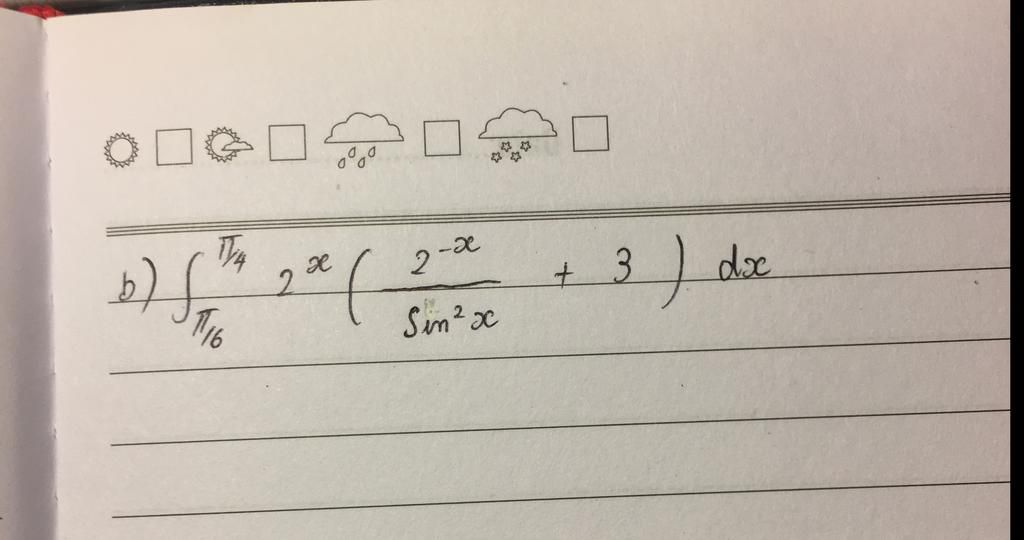 b) ∫_{π/6}^{π/4} 2^x ( 2^{-x} / Sin^2 x + 3 ) dx